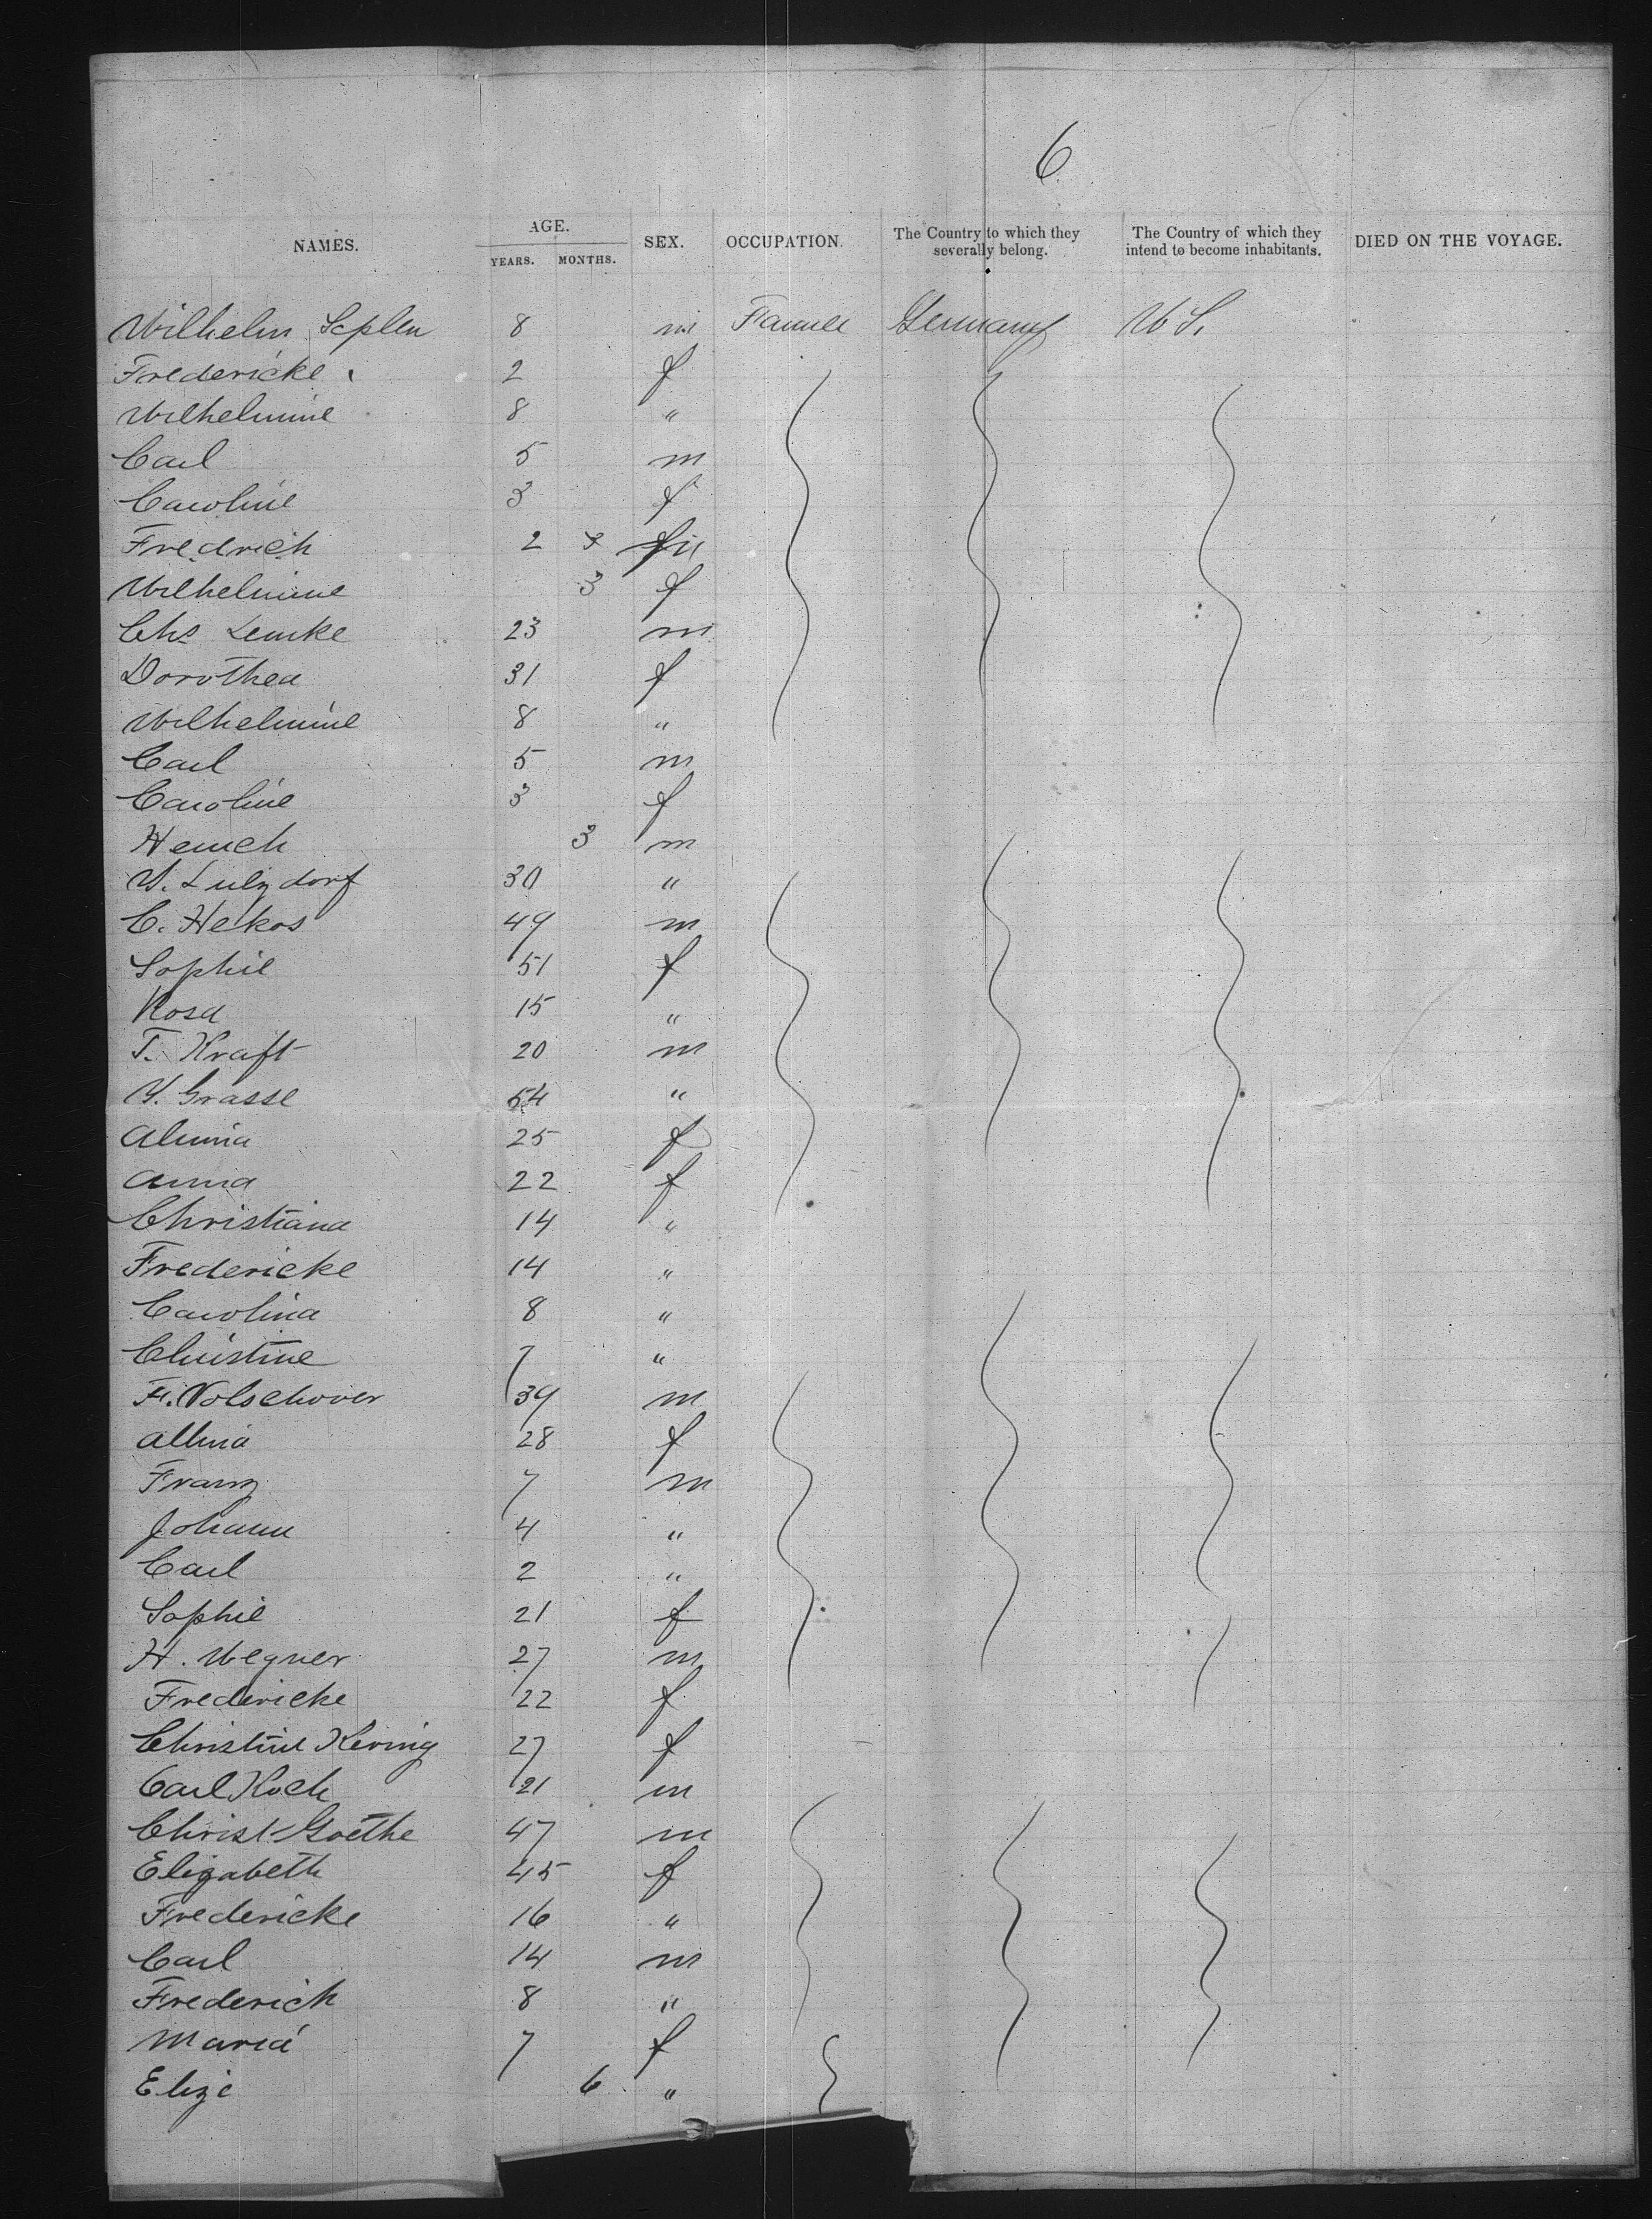 6
NAMES. AGE. YEARS. MONTHS. SEX. OCCUPATION. The Country to which they severally belong. The Country of which they intend to become inhabitants. DIED ON THE VOYAGE.
Wilhelm 8 m Farmer Germany U S.
Fredericke 2 f
Wilhelmine 8 "
Carl 5 m
Caroline 3 f
Fredrich 2 m
Wilhelmine 3 f
Chs Lemke 23 m
Dorothea 31 f
Wilhelmine 8 "
Carl 5 m
Caroline 3 f
Heinrch 3 m
30 "
C. Hekos 49 m
Sophie 51 f
Rosa 15 "
T. Kraft 20 m
Y. Grasse 54 "
25 f
Anna 22 f
Christiana 14 "
Fredericke 14 "
Carolina 8 "
Christine 7 "
39 m
28 f
Franz 7 m
Johann 4 "
Carl 2 "
Sophie 21 f
H. Wegner 27 m
Fredericke 22 f
Christine 27 f
Carl Koch 21 m
Christ Goethe 47 m
Elizabeth 45 f
Fredericke 16 "
Carl 14 m
Frederich 8 "
Maria 7 f
Elize 6 "